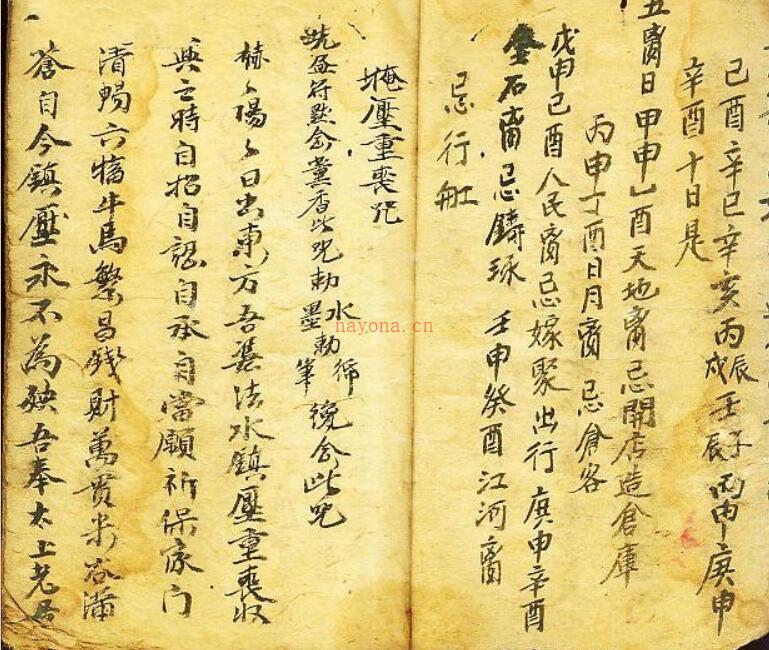 己酉辛巳辛亥丙辰丙戌壬子壬辰丙申庚申
辛酉十日是
五离日甲申乙酉天地离忌開店造倉庫
丙申丁酉日月离忌倉客
戊申己酉人民离忌嫁聚出行庚申辛酉
金石离忌鑄 壬申癸酉江河离
忌行舡
掩壓重丧咒
符默念薰香此咒勅水勅墨勅筆 念此咒
赫赫陽陽日出東方吾 法水鎮壓重丧收
與之時自招自認自承自當願祈保家门
清 六 牛馬繁昌錢財萬貫米谷滿
蒼自今鎮壓永不為殃吾奉太上老君
nayona.cn